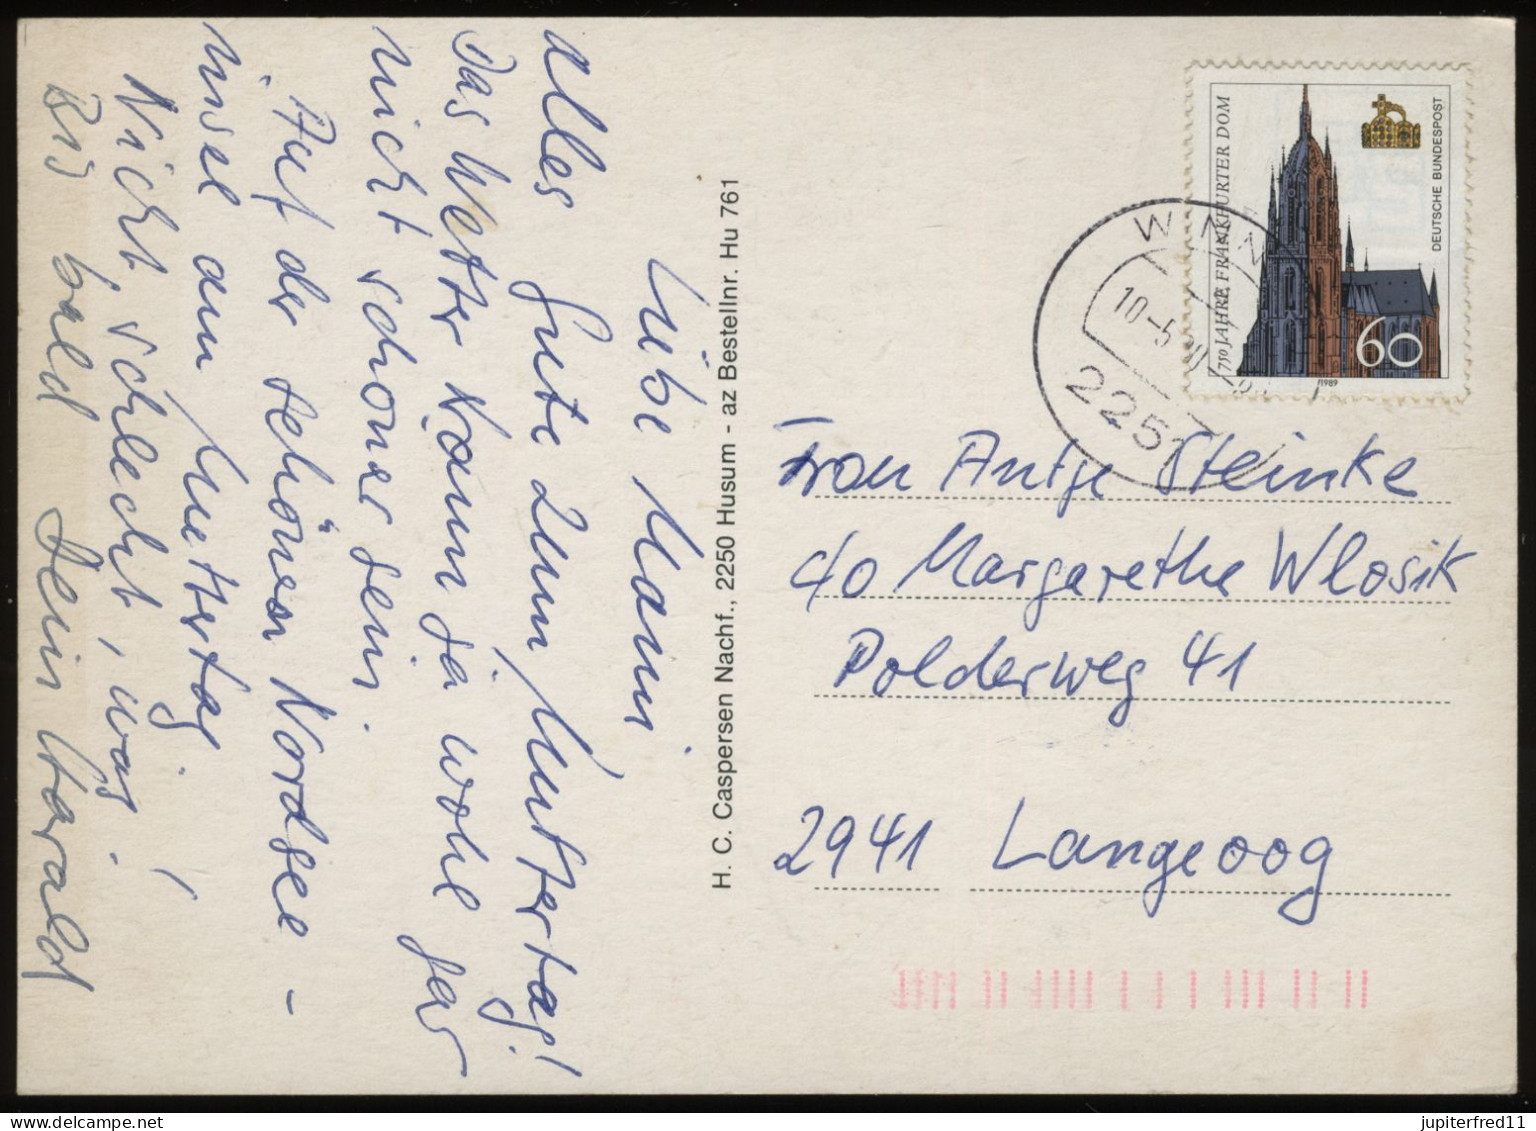 Liebe Mami
alles Gute zum Muttertag!
Das Wetter kann ja wohl gar
nicht schöner sein.
Auf der schönen Nordsee-
insel am Muttertag
Nicht schlecht, was!
Bis bald Dein Harald
H. C. Caspersen Nachf., 2250 Husum - az Bestellnr. Hu 761
750 JAHRE FRANKFURTER DOM
DEUTSCHE BUNDESPOST
60
1989
10-5
2251
Frau Antje Steinke
c/o Margarethe Wlosik
Polderweg 41
2941 Langeoog
jupiterfred11